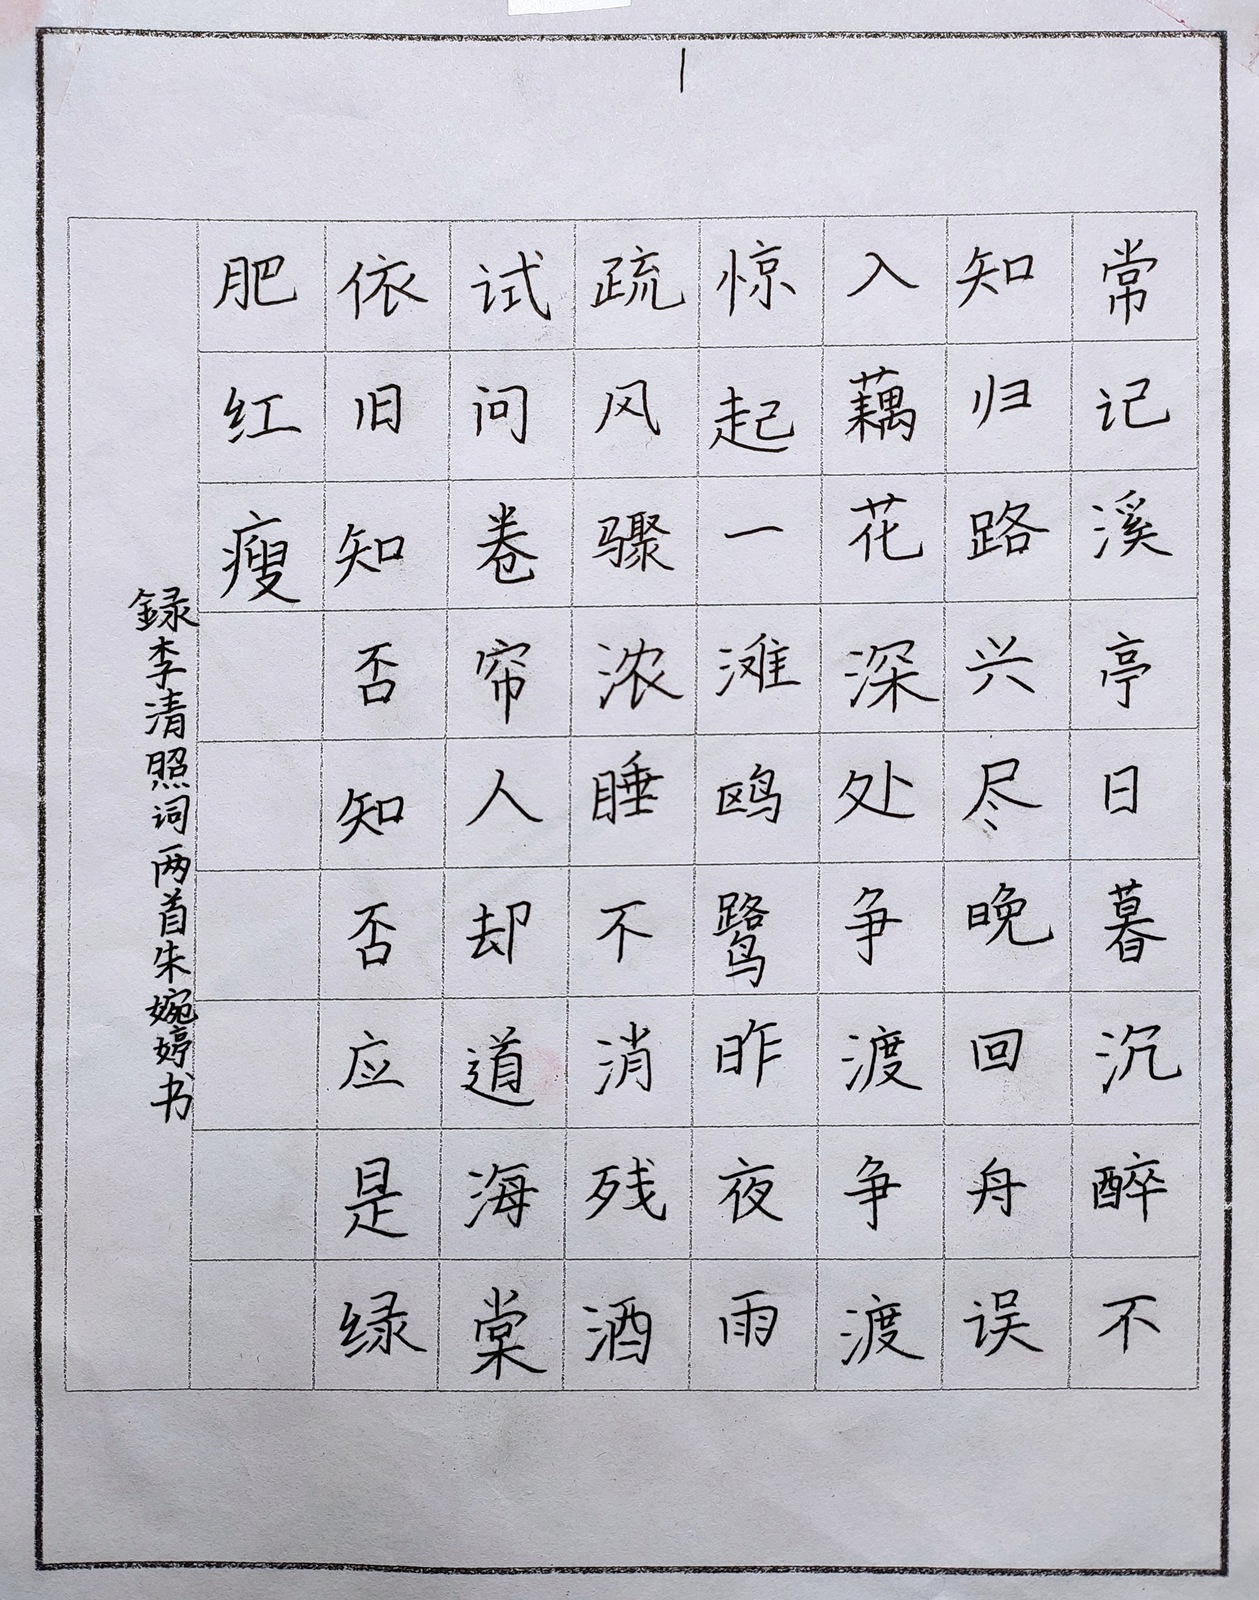 常记溪亭日暮沉醉不
知归路兴尽晚回舟误
入藕花深处争渡争渡
惊起一滩鸥鹭昨夜雨
疏风骤浓睡不消残酒
试问卷帘人却道海棠
依旧知否知否应是绿
肥红瘦
録李清照词两首朱婉婷书